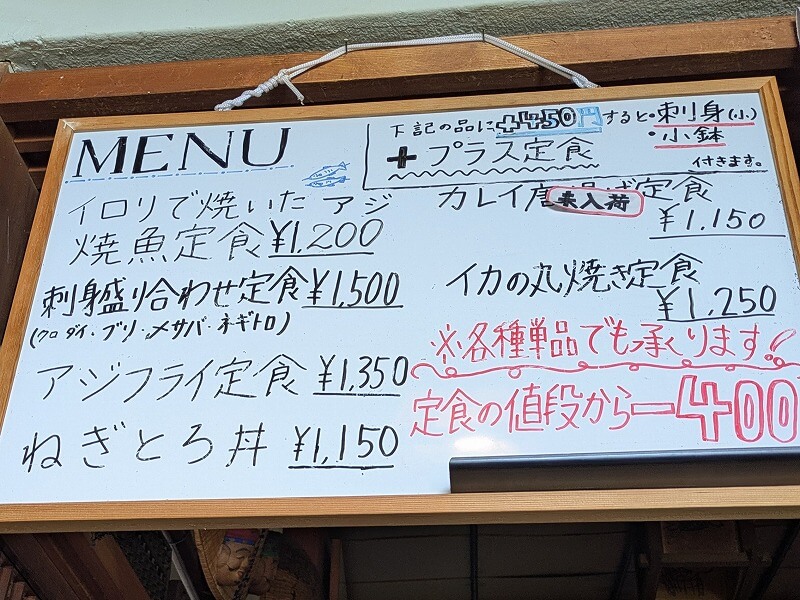 MENU
イロリで焼いた アジ
焼魚定食 ¥1,200
刺身盛り合わせ定食 ¥1,500
(クロダイ・ブリ・〆サバ・ネギトロ)
アジフライ定食 ¥1,350
ねぎとろ丼 ¥1,150
下記の品に+450円すると・刺身(小)
・小鉢
+プラス定食
付きます。
カレイ唐揚げ定食
未入荷
¥1,150
イカの丸焼き定食
¥1,250
※各種単品でも承ります!
定食の値段から-400